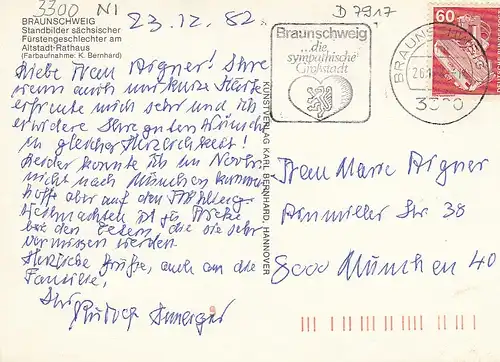 3300 N1
D 7917
BRAUNSCHWEIG
Standbilder sächsischer
Fürstengeschlechter am
Altstadt-Rathaus
(Farbaufnahme: K. Bernhard)
23.12.82
Liebe Frau Aigner! Ihre
wenn auch nur kurze Karte
erfreute mich sehr und ich
erwidere Ihre guten Wünsche
in gleicher Herzlichkeit!
Leider konnte ich im Nov.
nicht nach München kommen
hoffe aber auf den Frühling
Weihnachten ist zu
bei den Federn, die sie sehr
vermissen werden.
Herzliche Grüße, auch an die
Familie,
Ihr
Rudolf
KUNSTVERLAG KARL BERNHARD, HANNOVER
Braunschweig
...die
sympathische
Großstadt
BRAUNSCHWEIG
26.1
3300
60
Frau Marie Aigner
Ainmiller Str. 38
8000 München 40